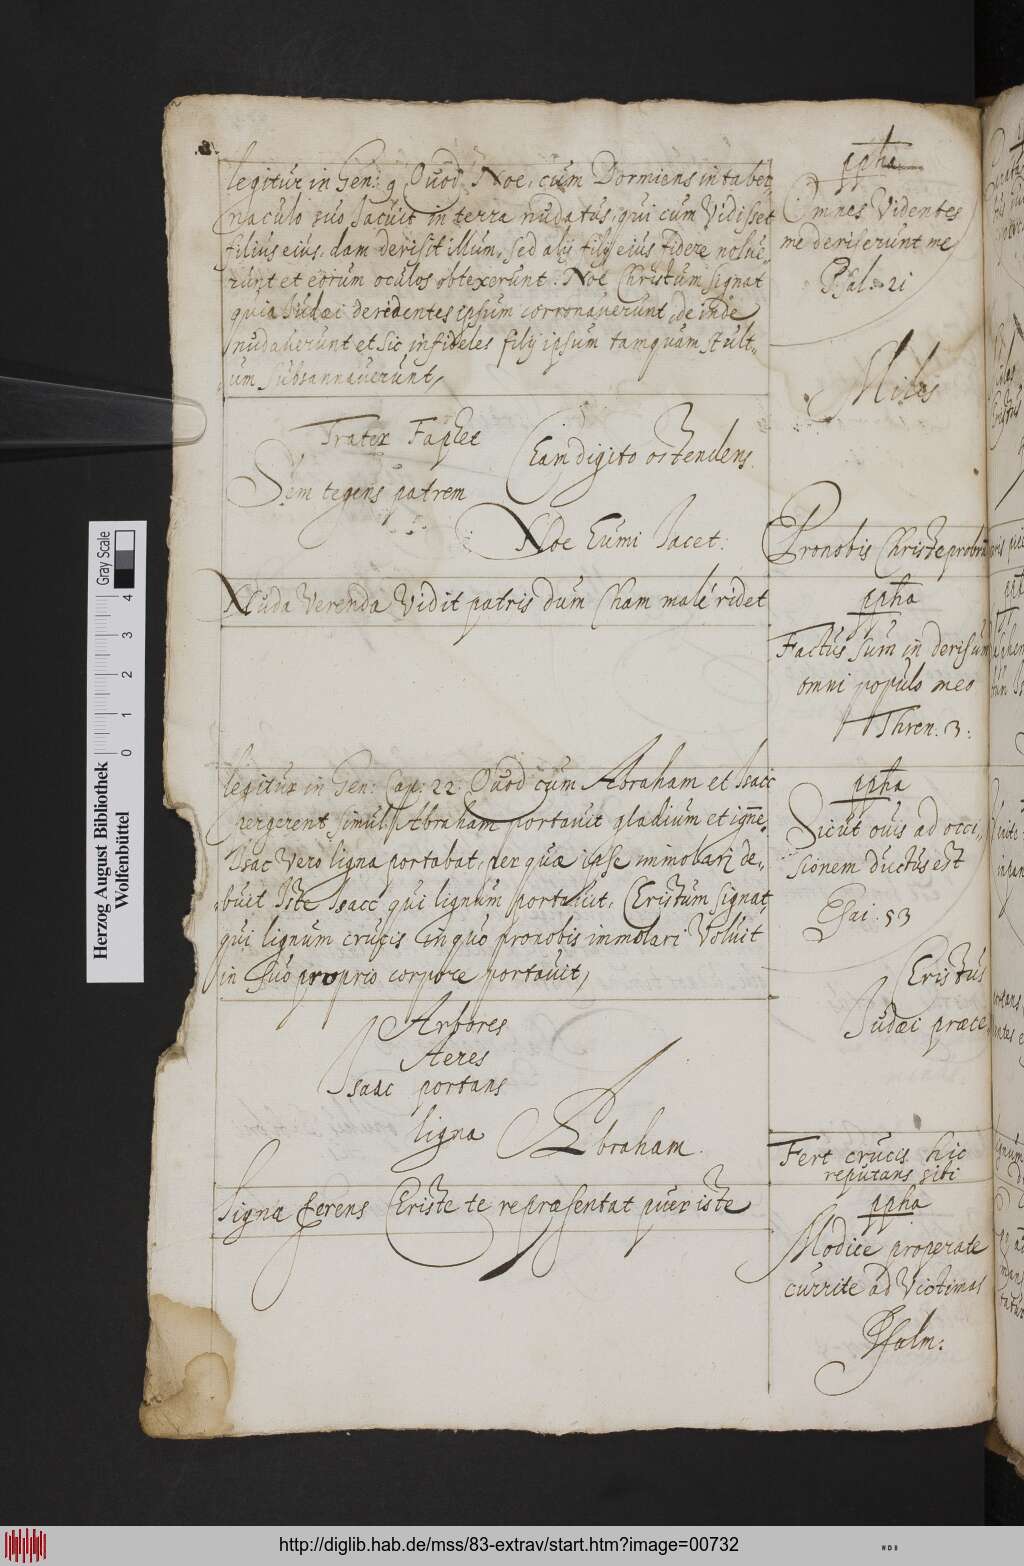 legitur in Gen: 9 Quod Noe, cum Dormiens in taber,
naculo suo Iacuit in terra nudatus, qui cum Vidisset
filius eius. dam derisit illum, sed alij filij eius ridere nolue,
runt et eorum oculos obtexerunt. Noe Christum signat
quia Iudæi deridentes ipsum corronaverunt, de inde
nudaverunt et Sic infideles filij ipsum tamquam stult,,
um subsannaverunt,
Frater Faplet
Cam digito ostendens.
Sem tegens patrem
Noe Eumi Iacet.
Nuda Verenda Vidit patris dum Cham malé ridet
legitur in Gen: Cap: 22: Quod cum Abraham et Isacc
pergerent simul Abraham portavit gladium et igne,
Isac Vero ligna portabat, per quæ ipse immolari de,,
buit Iste Isacc qui lignum portavit, Cristum signat,
qui lignum crucis in quo pronobis immolari Voluit
in suo proprio corpore portavit,
Arbores
Aeres
Isaac portans
ligna
Abraham.
Signa ferens Criste te repræsentat puer iste
ppha
Omnes Videntes
me deriserunt me
Psal: 21
Miles
Pronobis Christe probrum
ppha
Factus sum in derisum
omni populo meo
Thren. 3:
ppha
Sicut ovis ad occi,,
sionem ductus est
Esai. 53
Cristus
Iudæi præce
Fert crucis hic
reputans sibi
ppha
Modice properate
currite ad Victimas
Psalm:
Herzog August Bibliothek
Wolfenbüttel
Gray Scale
0 1 2 3 4
http://diglib.hab.de/mss/83-extrav/start.htm?image=00732